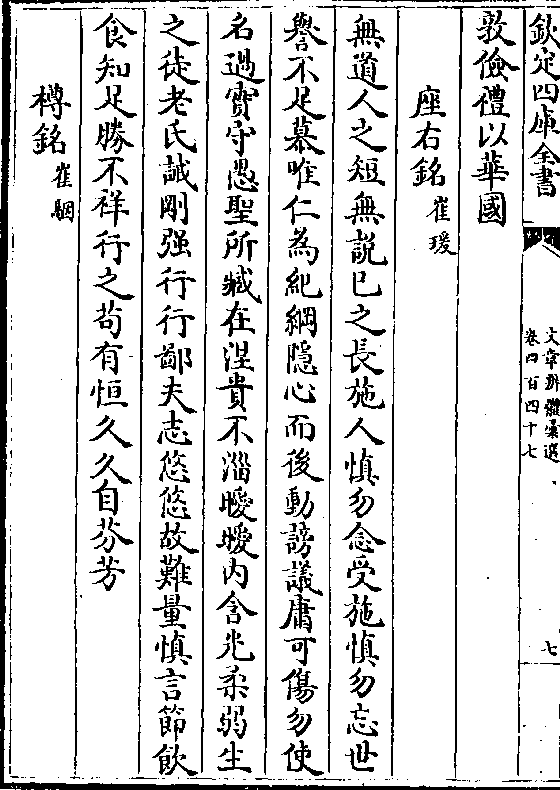 欽定四庫全書
文章辨體彙選
卷四百四十七
七
敦儉禮以華國
座右銘 崔瑗
無道人之短無説已之長施人慎勿念受施慎勿忘世
譽不足慕唯仁為紀綱隱心而後動謗議庸可傷勿使
名過實守愚聖所臧在涅貴不淄曖曖内含光柔弱生
之徒老氏誡剛强行行鄙夫志悠悠故難量慎言節飲
食知足勝不祥行之苟有恒久久自芬芳
樽銘 崔駰